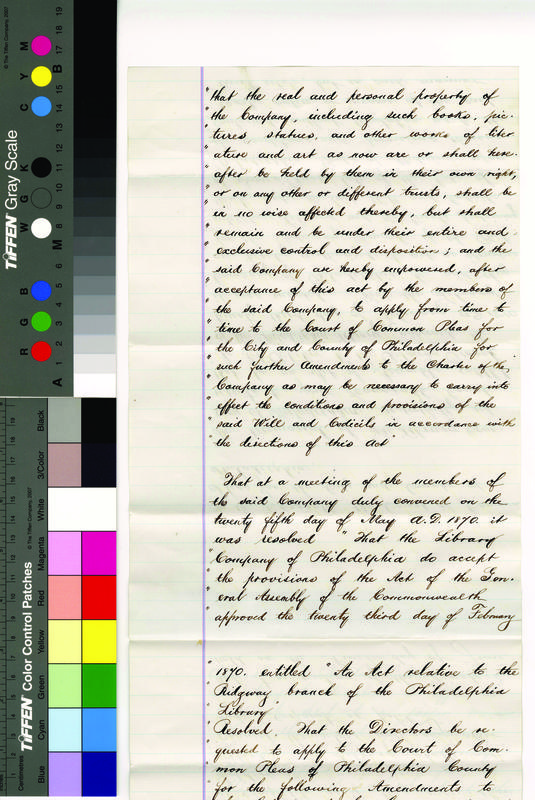 © The Tiffen Company, 2007
TIFFEN Gray Scale
R G B W G K C Y M
A 1 2 3 4 5 6 M 8 9 10 11 12 13 14 15 B 17 18 19
TIFFEN Color Control Patches
© The Tiffen Company, 2007
Centimetres
Blue Cyan Green Yellow Red Magenta White 3/Color Black
"that the real and personal property of
"the Company, including such books, pic-
"tures, statues, and other works of liter
"ature and art as now are or shall here-
"after be held by them in their own right,
"or on any other or different trusts, shall be
"in no wise affected thereby, but shall
"remain and be under their entire and
"exclusive control and disposition; and the
"said Company are hereby empowered, after
"acceptance of this act by the members of
"the said Company, to apply from time to
"time to the Court of Common Pleas for
"the City and County of Philadelphia for
"such further Amendments to the Charter of the
"Company as may be necessary to carry into
"effect the conditions and provisions of the
"said Will and Codicils in accordance with
"the directions of this Act"
That at a meeting of the members of
the said Company duly convened on the
twenty fifth day of May A.D. 1870. it
was resolved "That the Library
"Company of Philadelphia do accept
"the provisions of the Act of the Gen-
"eral Assembly of the Commonwealth
"approved the twenty third day of February
"1870. entitled "An Act relative to the
"Ridgway branch of the Philadelphia
"Library
"Resolved. That the Directors be re-
"quested to apply to the Court of Com-
"mon Pleas of Philadelphia County
"for the following Amendments to